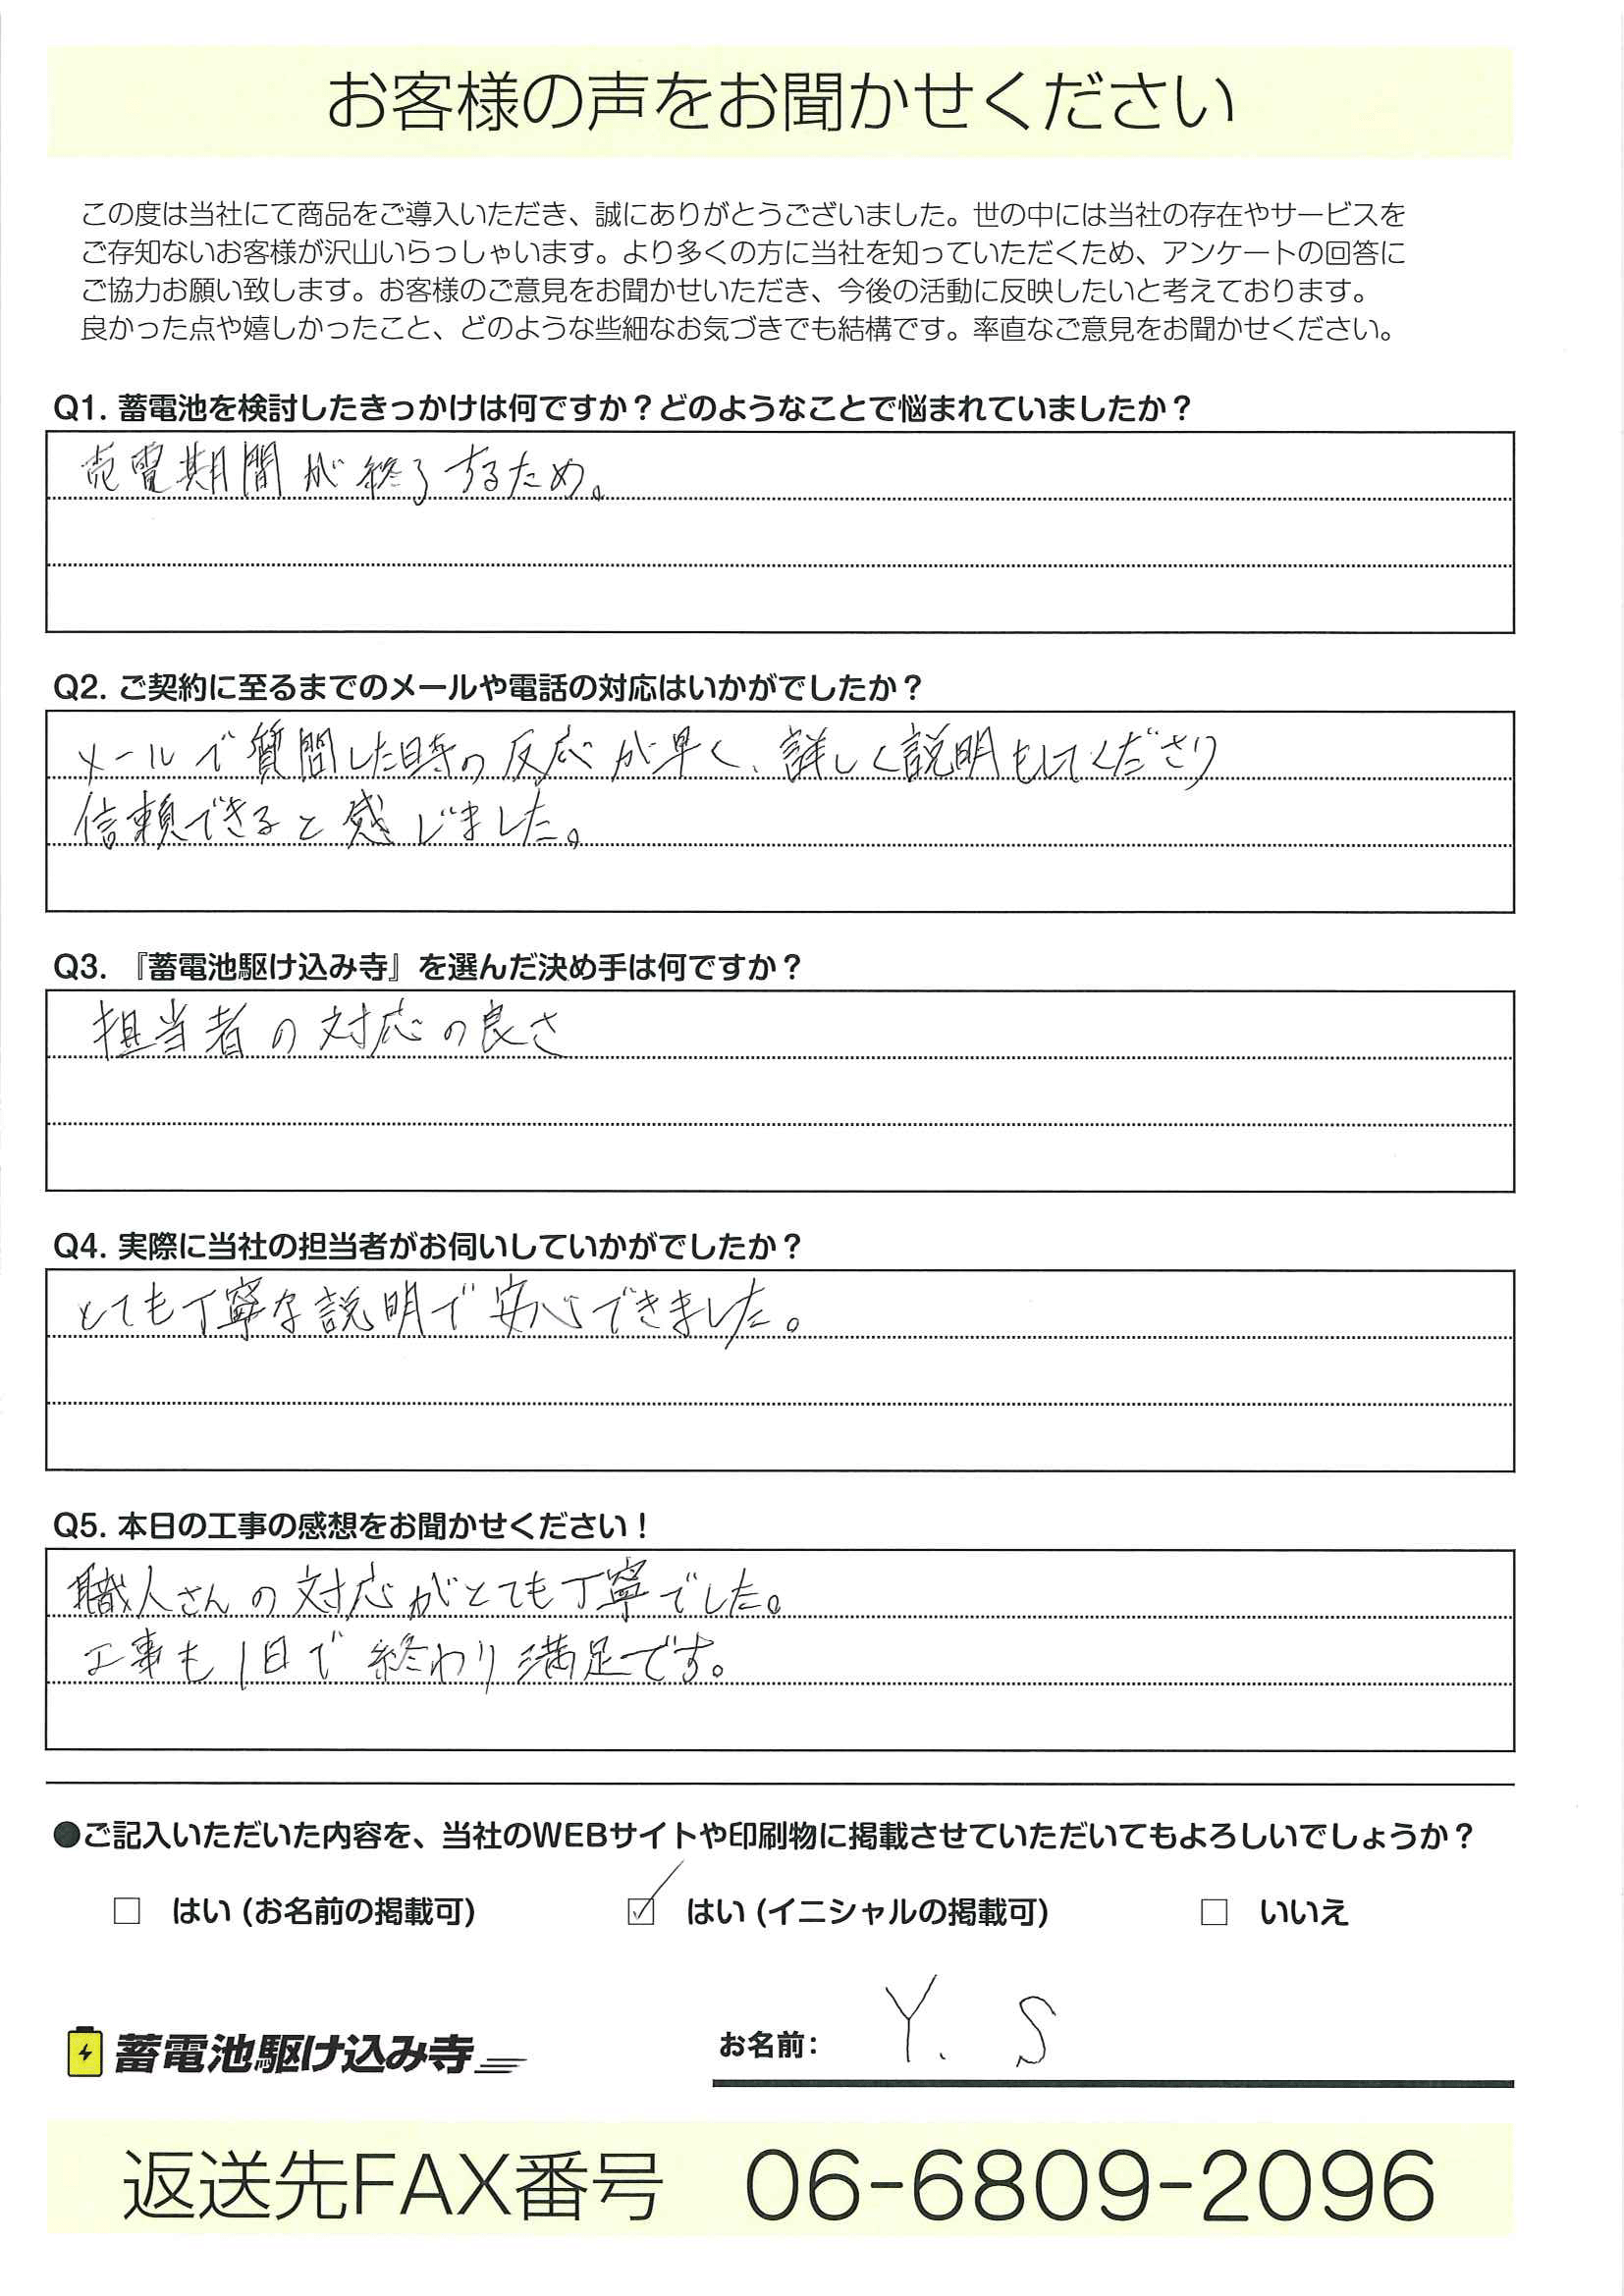 お客様の声をお聞かせください
この度は当社にて商品をご導入いただき、誠にありがとうございました。世の中には当社の存在やサービスを
ご存知ないお客様が沢山いらっしゃいます。より多くの方に当社を知っていただくため、アンケートの回答に
ご協力お願い致します。お客様のご意見をお聞かせいただき、今後の活動に反映したいと考えております。
良かった点や嬉しかったこと、どのような些細なお気づきでも結構です。率直なご意見をお聞かせください。
Q1. 蓄電池を検討したきっかけは何ですか？どのようなことで悩まれていましたか？
売電期間が終了するため。
Q2. ご契約に至るまでのメールや電話の対応はいかがでしたか？
メールで質問した時の反応が早く、詳しく説明もしてくださり
信頼できると感じました。
Q3. 『蓄電池駆け込み寺』を選んだ決め手は何ですか？
担当者の対応の良さ
Q4. 実際に当社の担当者がお伺いしていかがでしたか？
とても丁寧な説明で安心できました。
Q5. 本日の工事の感想をお聞かせください！
職人さんの対応がとても丁寧でした。
工事も1日で終わり満足です。
●ご記入いただいた内容を、当社のWEBサイトや印刷物に掲載させていただいてもよろしいでしょうか？
□ はい (お名前の掲載可) ☑ はい (イニシャルの掲載可) □ いいえ
蓄電池駆け込み寺 お名前: Y. S
返送先FAX番号 06-6809-2096